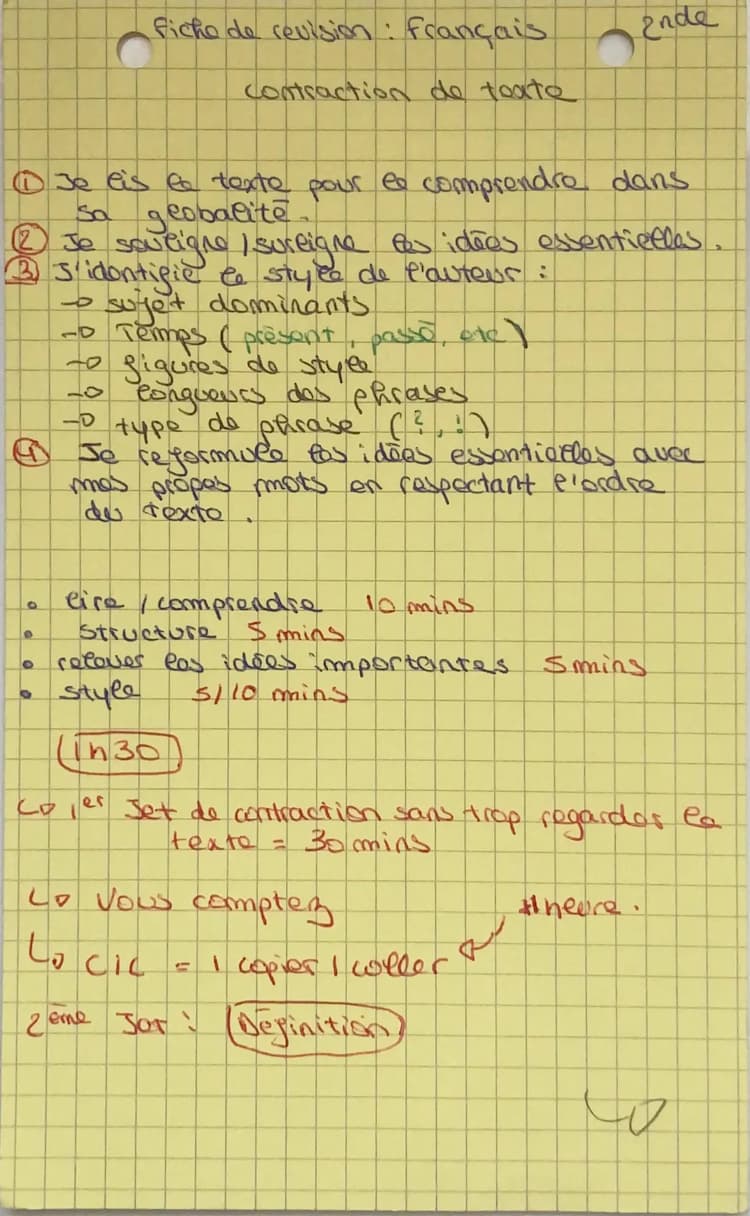 fiche de révision : Français 2nde
contraction de texte
① Je lis le texte pour le comprendre dans
sa globalité.
② Je souligne / surligne les idées essentielles.
③ J'identifie le style de l'auteur :
→ sujet dominants
→ Temps ( présent, passé, etc )
→ figures de style
→ longueurs des phrases
→ type de phrase ( ?, ! )
④ Je reformule les idées essentielles avec
mes propes mots en respectant l'ordre
du texte.
• lire / comprendre 10 mins
• structure 5 mins
• relever les idées importantes 5 mins
• style 5/10 mins
1h30
↳ 1er Jet de contraction sans trop regarder le
texte = 30 mins
↳ Vous comptez
1 heure.
↳ C/C = 1 copier / coller
2ème Jet : Définition